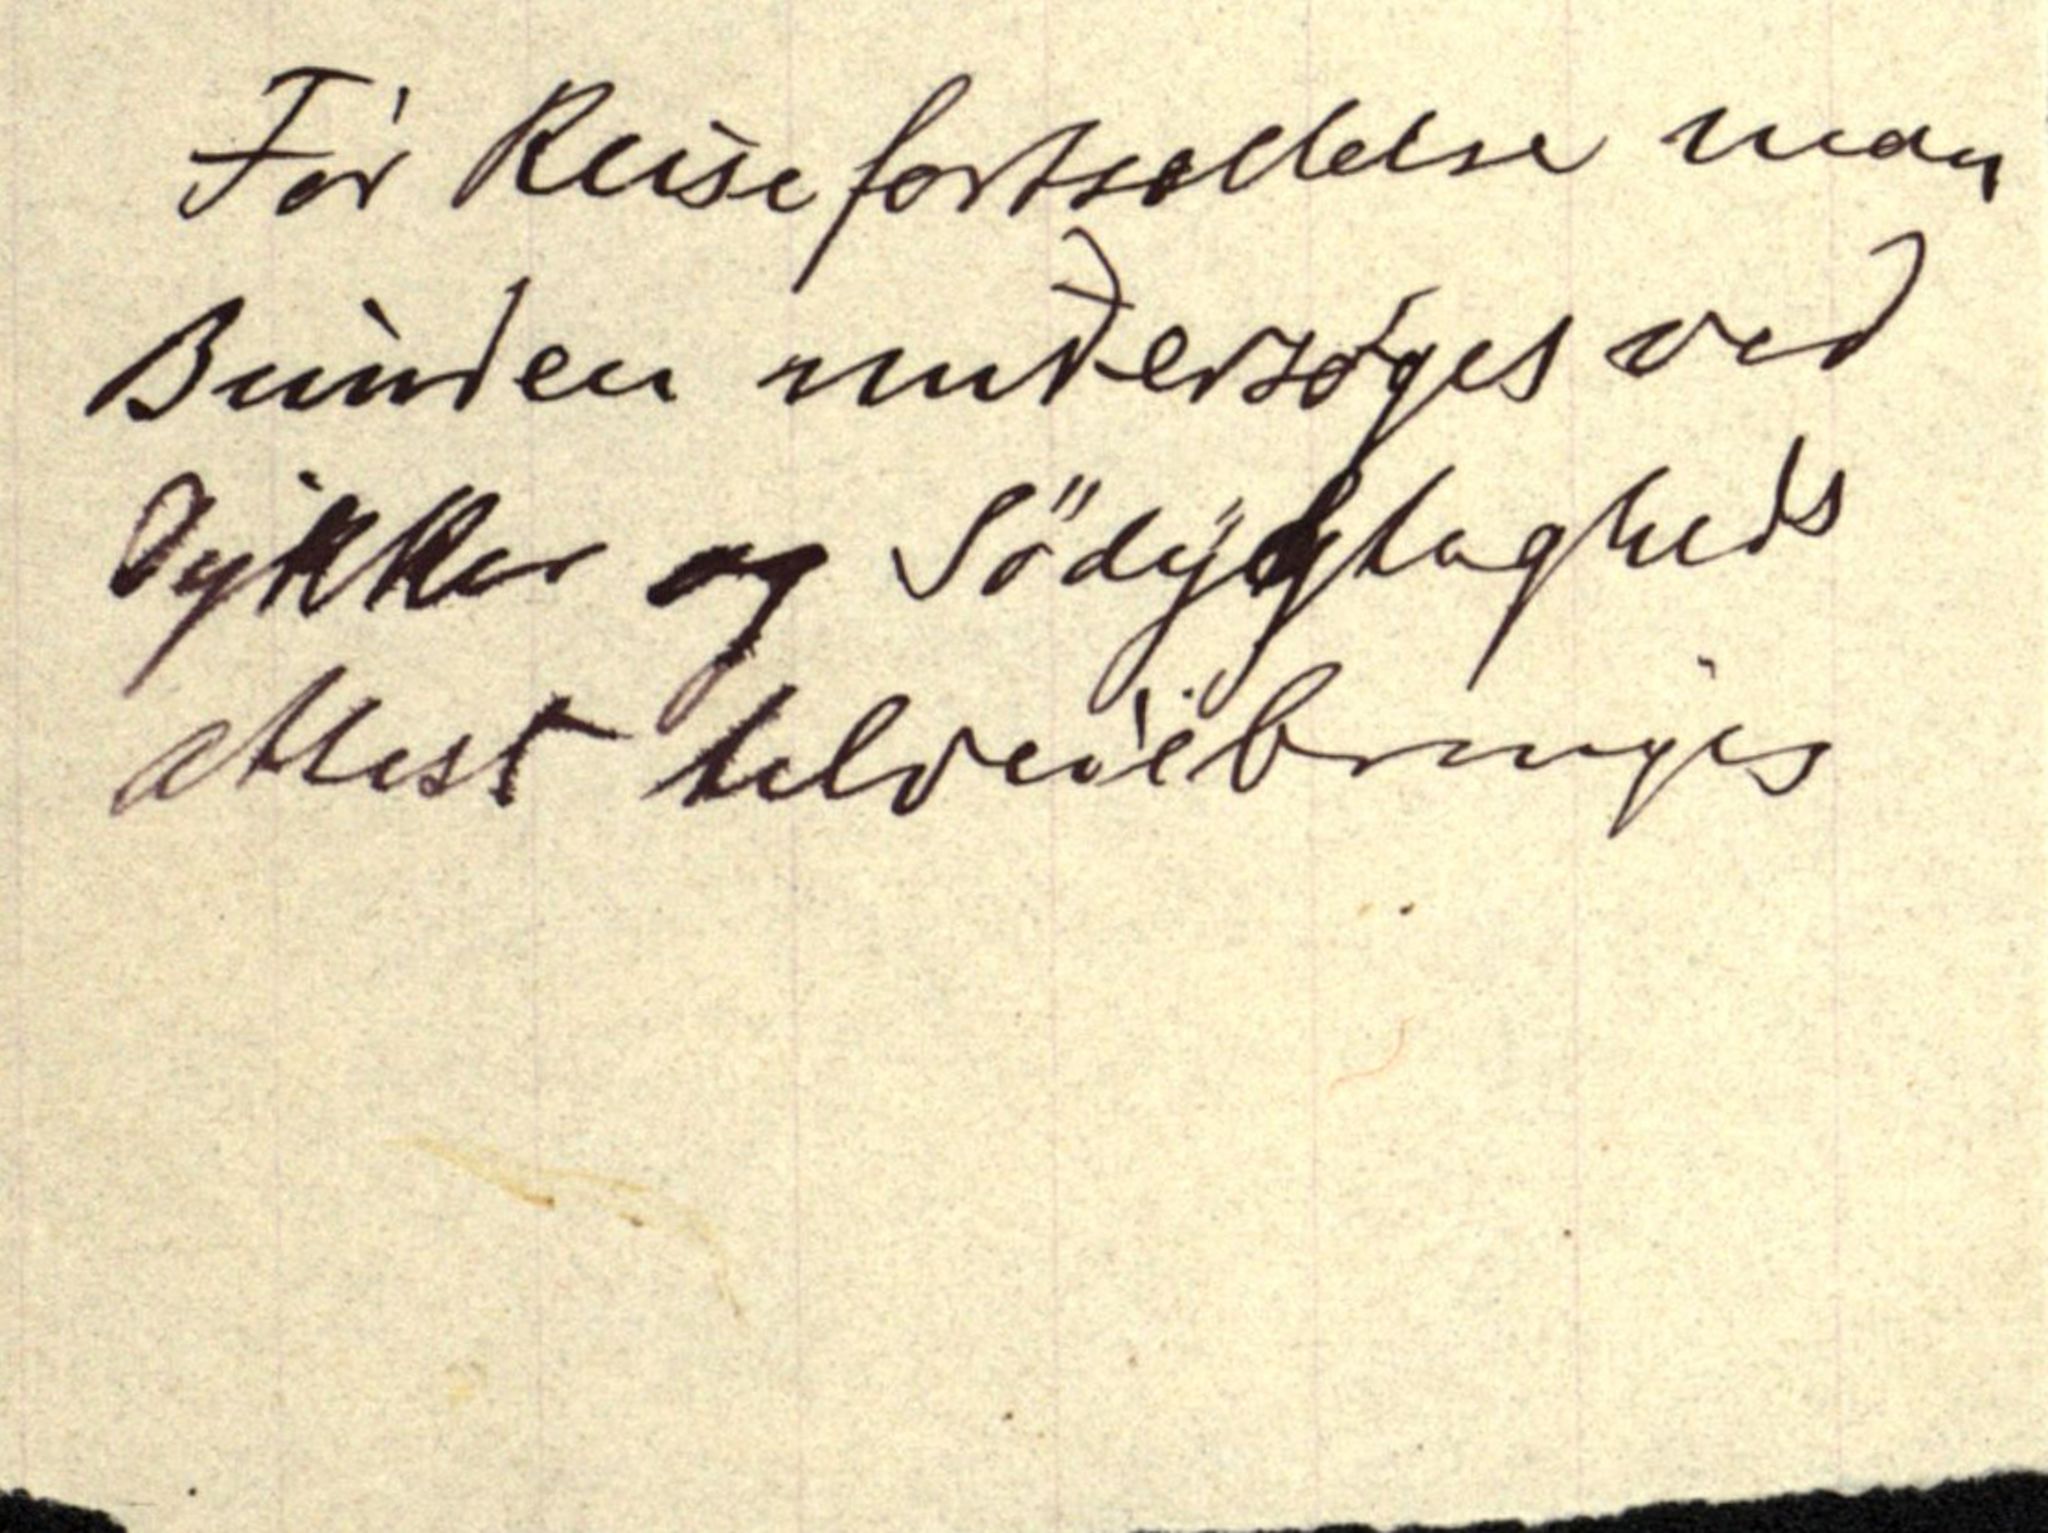 Før Reisefortsættelse maa
Bunden undersøges ved
Dykker og Södygtigheds
attest tilveiebringes